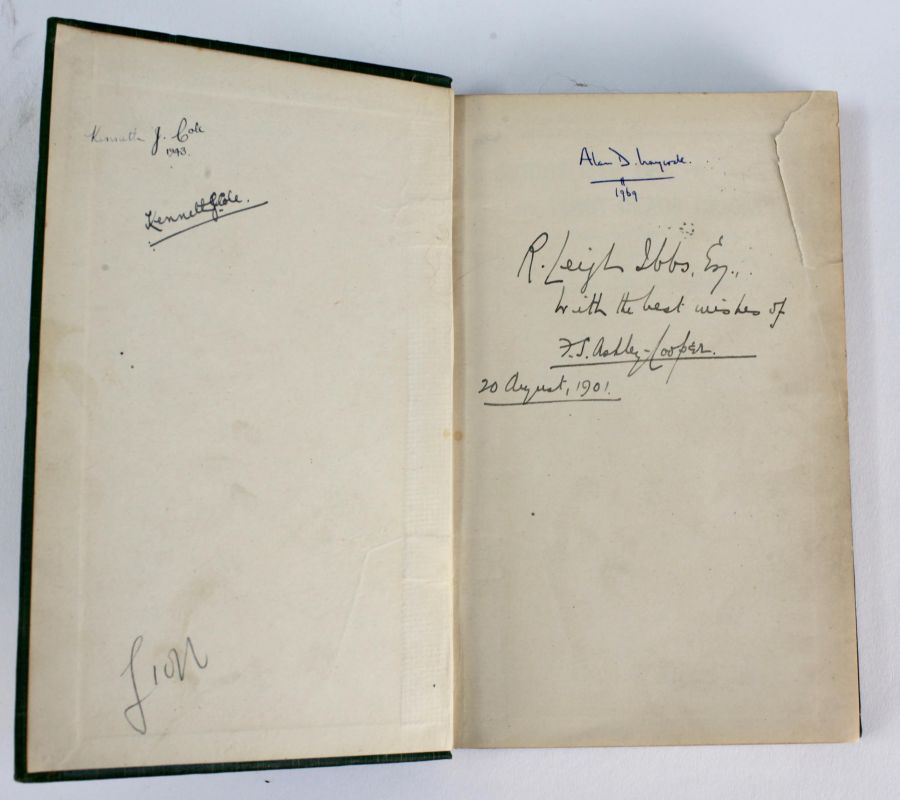 Kenneth J. Cole
1943.
Kenneth J Cole.
Alan D. Haycock.
1969
R. Leigh Ibbs, Esq.,
with the best wishes of
F.S. Ashley-Cooper.
20 August, 1901.